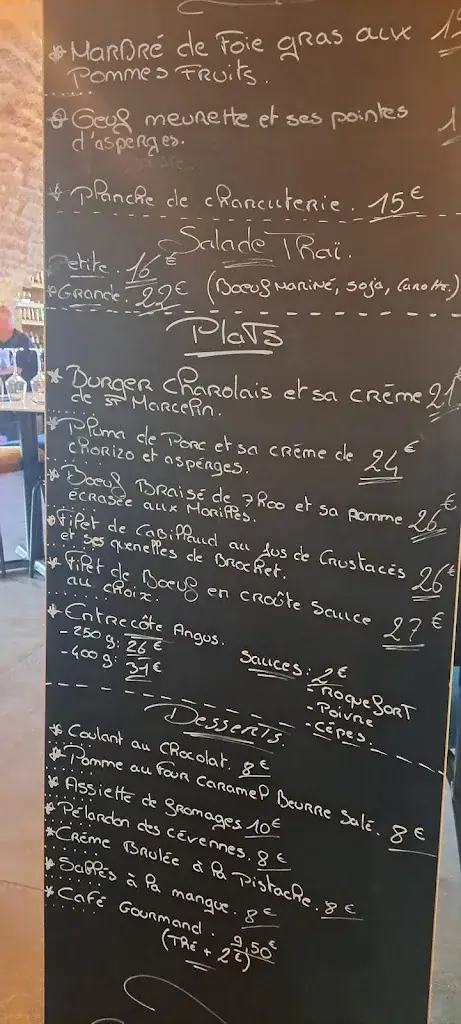 * Marbré de Foie gras aux
Pommes Fruits.
* Oeuf meurette et ses pointes
d'asperges.
* Planche de charcuterie. 15€
Salade Thaï.
Petite. 16€
*Grande. 22€ (Boeuf Mariné, soja, carotte.)
Plats
* Burger Charolais et sa crème 21€
de St Marcelin.
* Pluma de Porc et sa crème de 24€
chorizo et asperges.
* Boeuf Braisé de 7h00 et sa pomme 26€
écrasée aux Morilles.
* Filet de Cabillaud au Jus de Crustacés 26€
et ses quenelles de Brochet.
* Filet de Boeuf en croûte sauce 27€
au choix.
* Entrecôte Angus.
- 250 g: 26€
- 400 g: 31€
Sauces: 2€
- Roquefort
- Poivre
- Cèpes.
Desserts.
* Coulant au Chocolat. 8€
* Pomme au Four Caramel Beurre Salé. 8€
* Assiette de fromages 10€
* Pélardon des Cévennes. 8€
* Crème Brulée à la Pistache. 8€
* Sablés à la mangue. 8€
* Café Gourmand. 9,50€
(Thé + 2€)